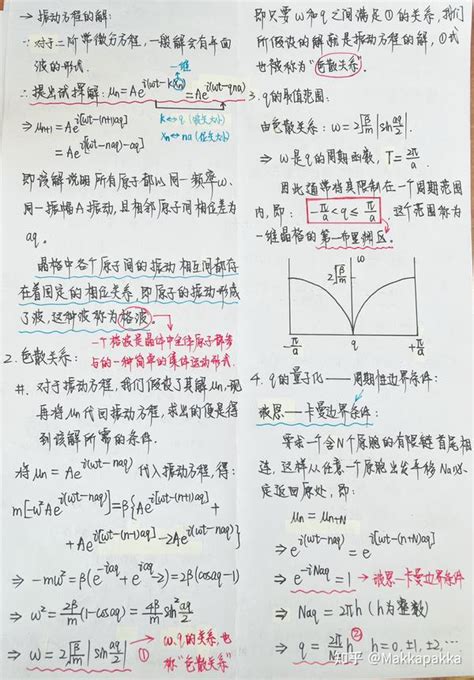 → 振动方程的解:
∵ 对于二阶常微分方程,一般解会有平面
波的形式.
一维
∴ 提出试探解: μn=Ae^i(ωt-kxn)=Ae^i(ωt-qna)
k↔q (波矢大小)
xn↔na (位矢大小)
⇒ μn+1=Ae^i[ωt-(n+1)aq]
=Ae^i[(ωt-naq)-aq]
即该解说明所有原子都以同一频率ω、
同一振幅A振动,且相邻原子间相位差为
aq。
晶格中各个原子间的振动相互间都存
在着固定的相位关系,即原子的振动形成
了波,这种波称为格波。
一个格波是晶体中全体原子都参
与的一种简单的集体运动形式.
2. 色散关系:
#. 对于振动方程,我们假设了其解μn,现
再将μn代回振动方程,求出的便是得
到该解所需的条件.
将 μn=Ae^i(ωt-naq) 代入振动方程,得:
m[-ω²Ae^i(ωt-naq)]=β{Ae^i[ωt-(n+1)aq]+
+Ae^i[ωt-(n-1)aq]-2Ae^i(ωt-naq)}
⇒ -mω²=β(e^-iaq+e^iaq-2)=2β(cosaq-1)
⇒ ω²=2β/m(1-cosaq)=4β/m sin²aq/2
⇒ ω=2√β/m|sin aq/2| ①
ω、q的关系,也
称"色散关系"
即只要ω和q之间满足①的关系,我们
所假设的解就是振动方程的解,①式
也被称为"色散关系".
3. q的取值范围:
由色散关系: ω=2√β/m|sin aq/2|
⇒ ω是q的周期函数, T=2π/a
因此通常将其限制在一个周期范围
内,即: -π/a<q≤π/a,这个范围称为
一维晶格的第一布里渊区。
ω
2√β/m
-π/a q +π/a
4. q的量子化——周期性边界条件:
玻恩—卡曼边界条件:
要求一个含N个原胞的有限链首尾相
连,这样从任意一个原胞出发平移Na必
定返回原处,即:
μn=μn+N
⇒ e^i(ωt-naq)=e^i[ωt-(n+N)aq]
⇒ e^-iNaq=1 → 玻恩-卡曼边界条件
⇒ Naq=2πh (h为整数)
⇒ q=2π/Na h ② h=0,±1,±2,…
知乎 @Makkapakka